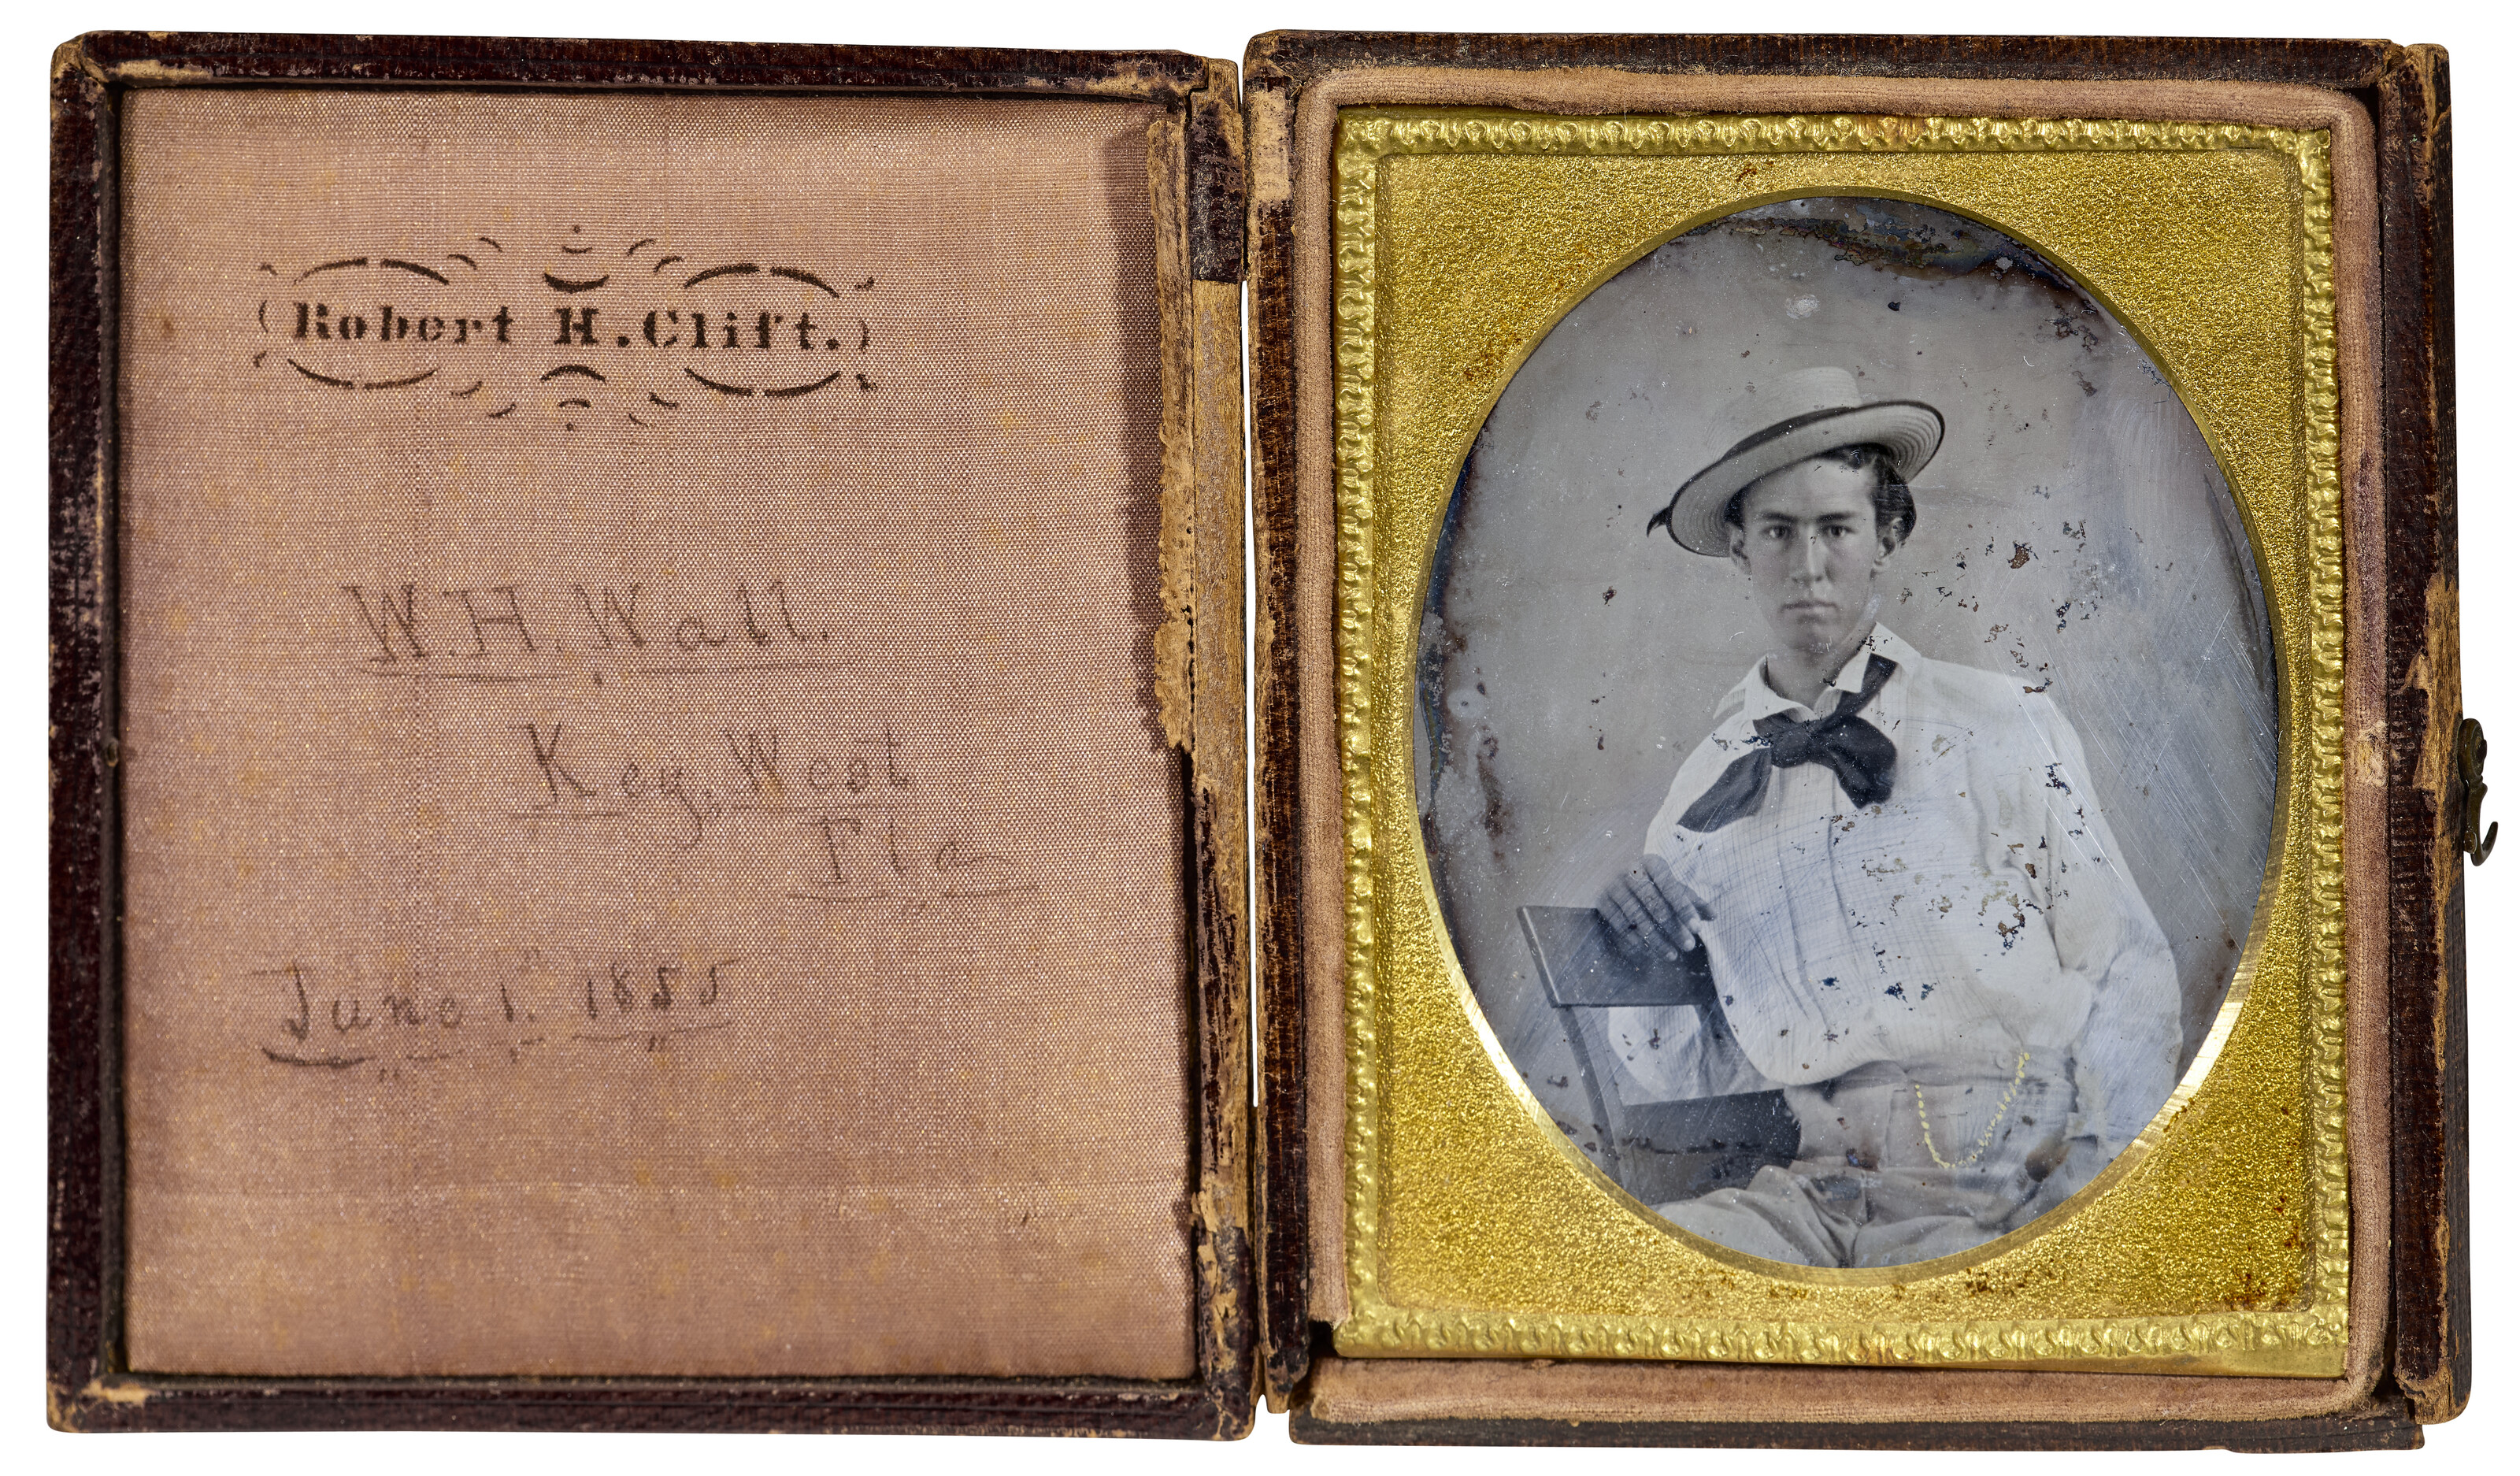 Robert H. Clift.
W. H. Wall.
Key, West
Fla
June 1. 1855